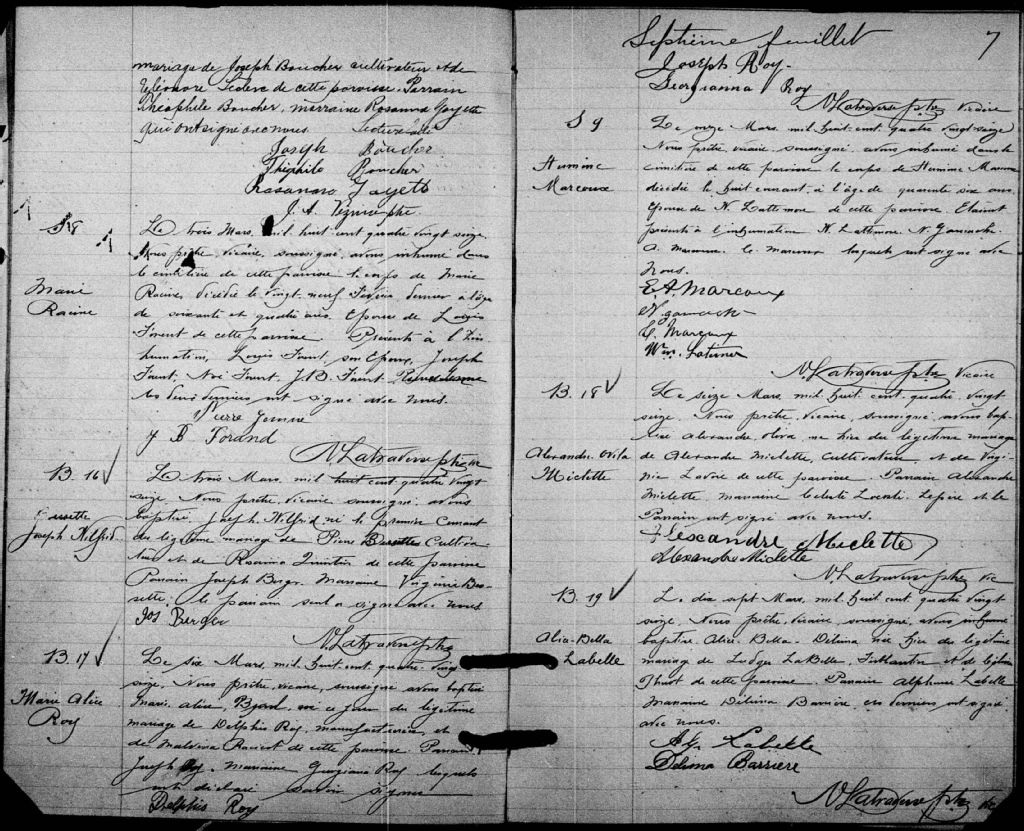 mariage de Joseph Boucher cultivateur et de
Eléonore Leclerc de cette paroisse. Parrain
Théophile Boucher, marraine Rosanna Goyette
qui ont signé avec nous. Lecture faite
Joseph Boucher
Théophile Boucher
Rosanna Goyett
J. A. ptre.
S 8
Marie
Racine
Le trois Mars, mil huit cent quatre vingt seize.
Nous prêtre, vicaire, soussigné, avons inhumé dans
le cimetière de cette paroisse le corps de Marie
Racine, décédée le vingt-neuf Février dernier à l'âge
de soixante et quatre ans. Epouse de Louis
Forent de cette paroisse Présents à l'In-
humation, Louis Forent, son Epoux, Joseph
Forent, Noé Forent, J.B. Forent
les deux derniers ont signé avec nous.
Pierre
J B Forand
N Latraverse ptre
B. 16
Bessette
Joseph Wilfrid
Le trois Mars, mil huit cent quatre vingt
seize Nous prêtre, vicaire, soussigné, avons
baptisé, Joseph, Wilfrid né le premier courant
du légitime mariage de Pierre Bessette Cultiva-
teur et de Rosanna Quintin de cette paroisse
Parrain Joseph Berger Marraine Virginie Bes-
sette; le parrain seul a signé avec nous
Jos Berger
N. Latraverse ptre
B. 17
Marie Alice
Roy
Le six Mars, mil huit cent quatre vingt
seize, Nous prêtre, vicaire, soussigné avons baptisé
Marie Alice, née ce jour du légitime
mariage de Delphis Roy, manufacturier, et
de Malvina Racicot de cette paroisse. Parrain
Joseph Roy. Marraine Georgiana Roy lesquels
ont déclaré savoir signer
Delphis Roy
Septième feuillet 7
Joseph Roy
Georgianna Roy
N Latraverse ptre Vicaire
S 9
Marcoux
Le onze Mars, mil huit cent quatre vingt seize
Nous prêtre, vicaire, soussigné, avons inhumé dans le
cimetière de cette paroisse le corps de
décédée le huit courant, à l'âge de quarante six ans.
Epouse de N. Lattimore de cette paroisse. Etaient
présents à l'inhumation N. Lattimore. N.
nous.
E. A. Marcoux
N.
E. Marcoux
Wm. Latimer
N Latraverse ptre Vicaire
B. 18
Alexandre. Ovila
Miclette
Le seize Mars, mil huit cent quatre vingt
seize. Nous prêtre, vicaire, soussigné, avons bap-
tisé Alexandre Ovila, né hier du légitime mariage
de Alexandre Miclette, Cultivateur, et de Virgi-
nie Lavoie de cette paroisse. Parrain Alexandre
Miclette, marraine Celeste Lepire et le
Parrain ont signé avec nous.
Alexandre Miclette
Alexandre Miclette
N Latraverse ptre Vic
B. 19
Alice-Bella
Labelle
Le dix sept Mars, mil huit cent quatre vingt
seize. Nous prêtre, vicaire, soussigné, avons
baptisé Alice. Bella. Délima née hier du légitime
mariage de Ludger LaBelle, Ferblantier et de
de cette paroisse. Parrain Alphonse Labelle
Marraine Délima Barrière, ces derniers ont signé
avec nous.
Labelle
Delima Barriere
N Latraverse ptre Vic